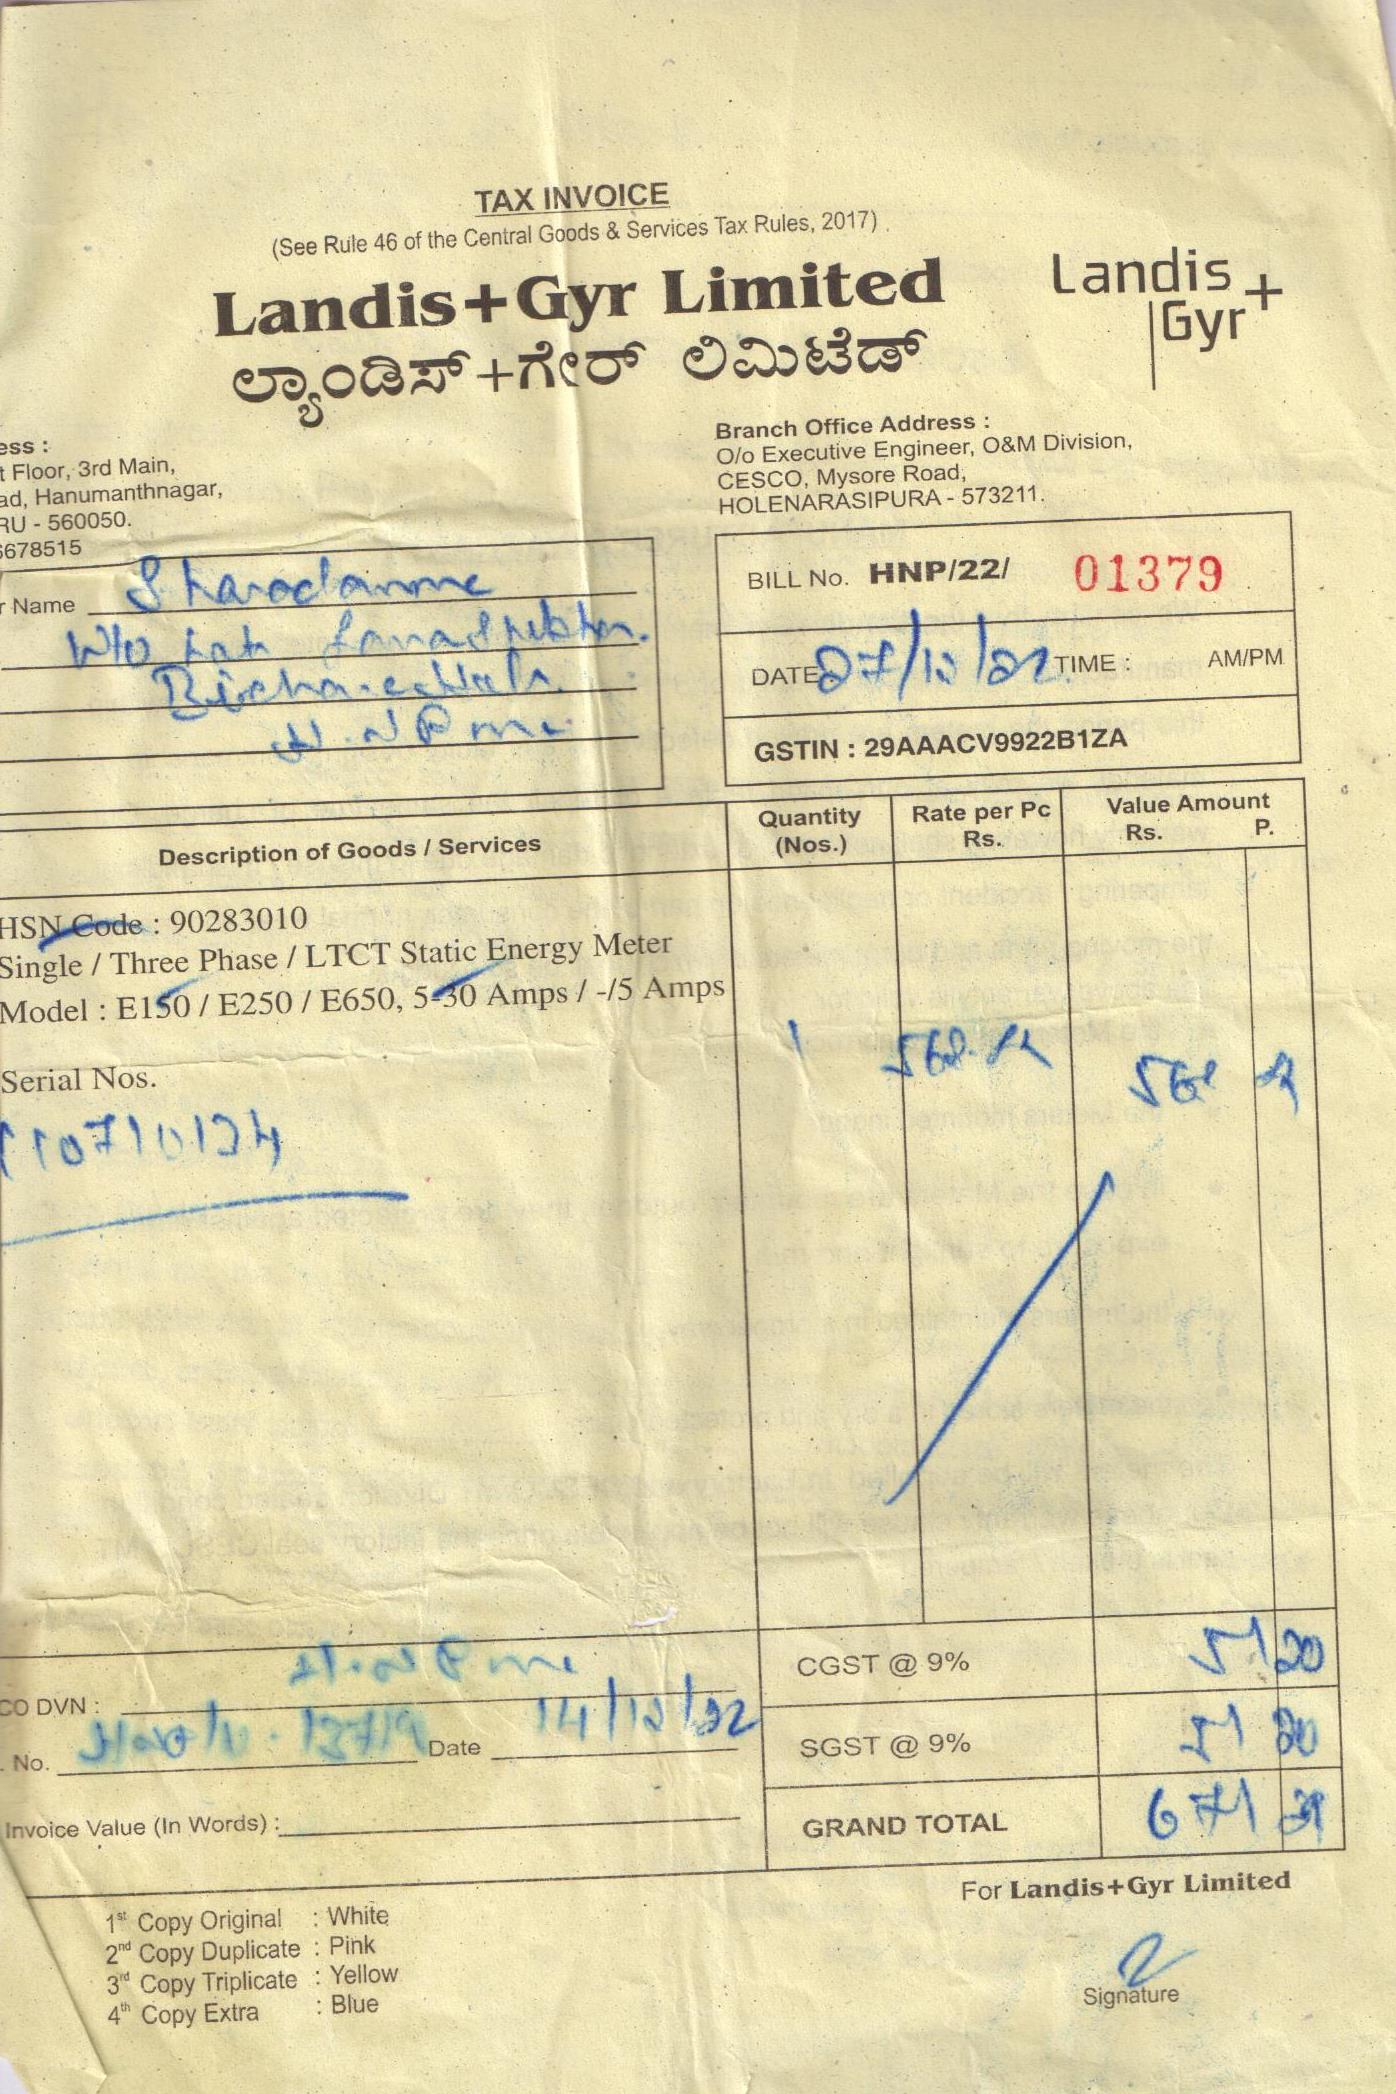 TAX INVOICE
(See Rule 46 of the Central Goods & Services Tax Rules, 2017)
Landis+Gyr Limited
ಲ್ಯಾಂಡಿಸ್+ಗೇರ್ ಲಿಮಿಟೆಡ್
Landis
Gyr+
ess :
t Floor, 3rd Main,
ad, Hanumanthnagar,
RU - 560050.
6678515
Branch Office Address :
O/o Executive Engineer, O&M Division,
CESCO, Mysore Road,
HOLENARASIPURA - 573211.
r Name
W/o
BILL No. HNP/22/ 01379
DATE 27/12/22 TIME : AM/PM
GSTIN : 29AAACV9922B1ZA
Description of Goods / Services Quantity (Nos.) Rate per Pc Rs. Value Amount Rs. P.
HSN Code : 90283010
Single / Three Phase / LTCT Static Energy Meter
Model : E150 / E250 / E650, 5-30 Amps / -/5 Amps
1
Serial Nos.
CO DVN :
. No. Date 14/12/22
Invoice Value (In Words) :
CGST @ 9% 51 20
SGST @ 9% 51 20
GRAND TOTAL 671
For Landis+Gyr Limited
Signature
1st Copy Original : White
2nd Copy Duplicate : Pink
3rd Copy Triplicate : Yellow
4th Copy Extra : Blue